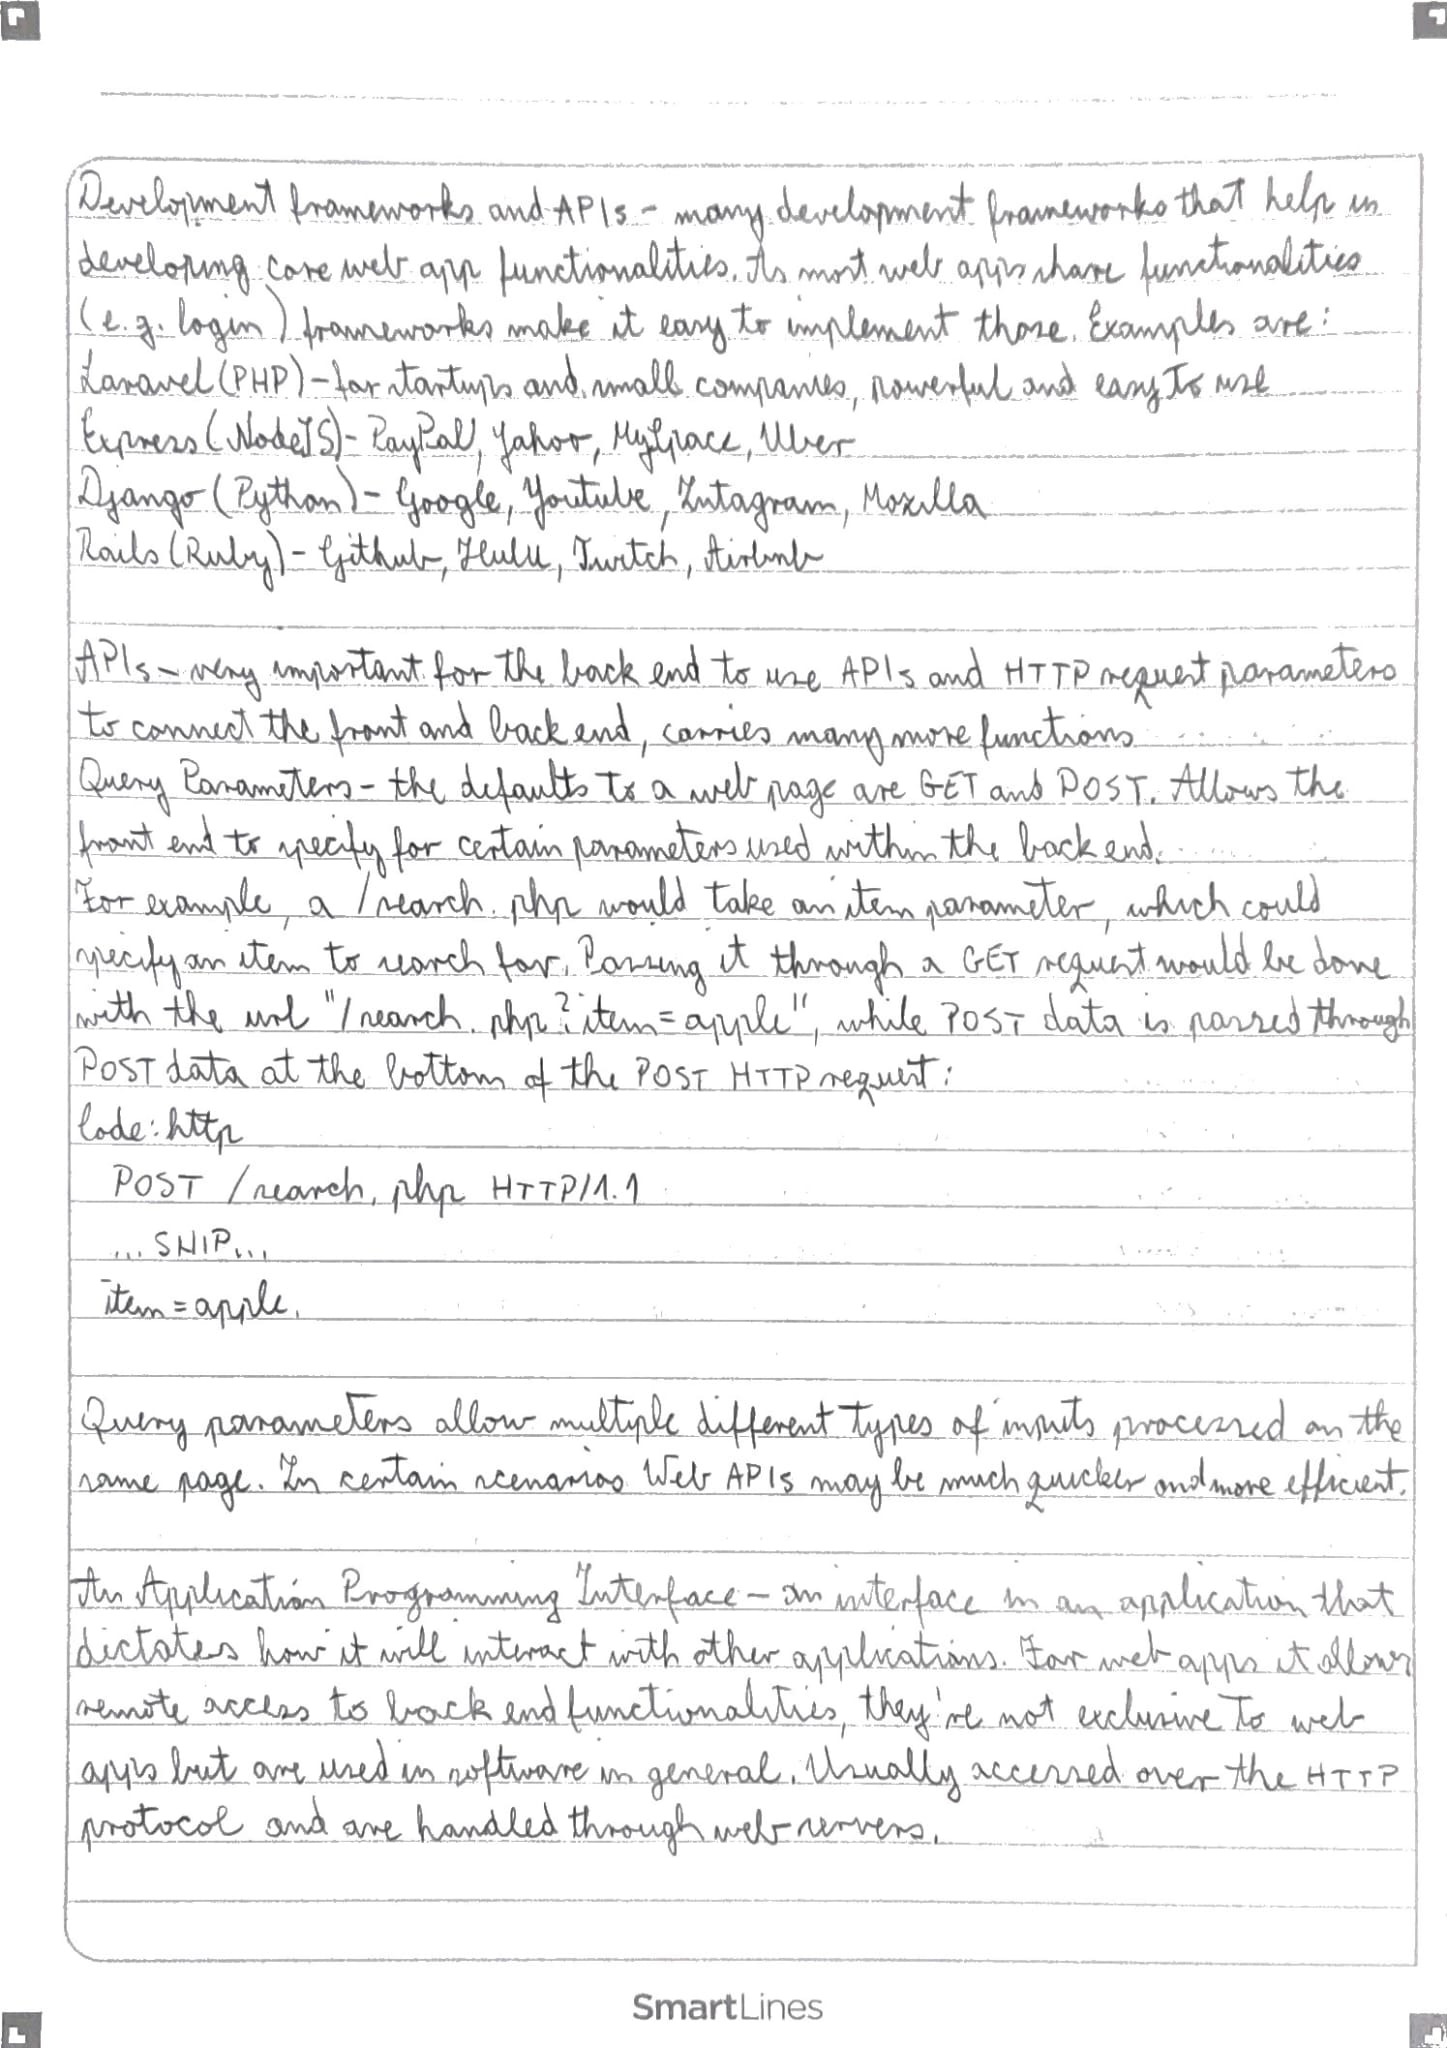 Development frameworks and APIs - many development frameworks that help in
developing core web app functionalities. As most web apps share functionalities
(e.g. login) frameworks make it easy to implement those. Examples are:
Laravel (PHP) - for startups and small companies, powerful and easy to use
Express (NodeJS) - PayPal, Yahoo, MySpace, Uber
Django (Python) - Google, Youtube, Intagram, Mozilla
Rails (Ruby) - Github, Hulu, Twitch, Airbnb
APIs - very important for the back end to use APIs and HTTP request parameters
to connect the front and back end, carries many more functions
Query Parameters - the defaults to a web page are GET and POST. Allows the
front end to specify for certain parameters used within the back end.
For example, a /search.php would take an item parameter, which could
specify an item to search for. Passing it through a GET request would be done
with the url "/search.php?item=apple", while POST data is passed through
POST data at the bottom of the POST HTTP request:
Code: http
POST /search.php HTTP/1.1
...SNIP...
item=apple.
Query parameters allow multiple different types of inputs processed on the
same page. In certain scenarios Web APIs may be much quicker and more efficient.
An Application Programming Interface - an interface in an application that
dictates how it will interact with other applications. For web apps it allows
remote access to back end functionalities, they're not exclusive to web
apps but are used in software in general. Usually accessed over the HTTP
protocol and are handled through web servers.
SmartLines